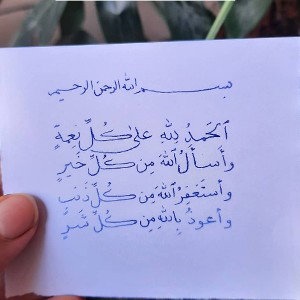 بسم الله الرحمن الرحيم
الحَمدُ لِلهِ عَلىٰ كُلِّ نِعمَةٍ
وأَسأَلُ اللهَ مِن كُلِّ خَيرٍ
وأَستَغفِرُ اللهَ مِن كُلِّ ذَنبٍ
وأَعوذُ بِاللهِ مِن كُلِّ شَرٍ